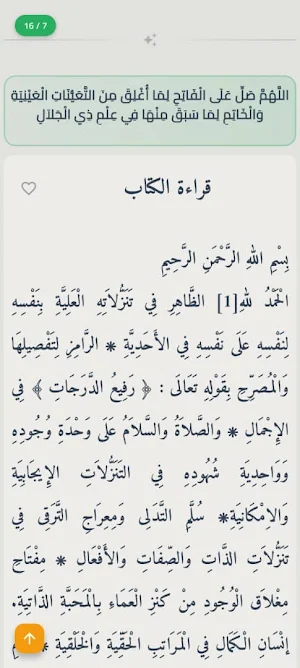 16 / 7
اللَّهُمَّ صَلِّ عَلَى الْفَاتِحِ لِمَا أُغْلِقَ مِنَ التَّعَيُّنَاتِ الْعَيْنِيَّةِ
وَالْخَاتِمِ لِمَا سَبَقَ مِنْهَا فِي عِلْمِ ذِي الْجَلَالِ
قراءة الكتاب
بِسْمِ اللهِ الرَّحْمَنِ الرَّحِيمِ
الْحَمْدُ لِلَّهِ[1] الظَّاهِرِ فِي تَنَزُّلَاتِهِ الْعَلِيَّةِ بِنَفْسِهِ
لِنَفْسِهِ عَلَى نَفْسِهِ فِي الأَحَدِيَّةِ * الرَّامِزِ لِتَفْصِيلِهَا
وَالْمُصَرِّحِ بِقَوْلِهِ تَعَالَى : ﴿ رَفِيعُ الدَّرَجَاتِ ﴾ فِي
الإِجْمَالِ * وَالصَّلَاةُ وَالسَّلَامُ عَلَى وَحْدَةِ وُجُودِهِ
وَوَاحِدِيَّةِ شُهُودِهِ فِي التَنَزُّلَاتِ الإِيجَابِيَّةِ
وَالِامْكَانِيَّةِ* سُلَّمِ التَّدَلِى وَمِعِرَاجِ التَّرَقِى فِي
تَنَزُّلَاتِ الذَّاتِ وَالصِّفَاتِ وَالأَفْعَالِ * مِفْتَاحِ
مِغْلَاقِ الْوُجُودِ مِنْ كَنْزِ الْعَمَاءِ بِالْمَحَبَّةِ الذَّاتِيَّةِ.
إِنْسَانِ الْكَمَالِ فِي الْمَرَاتِبِ الْحَقِّيَّةِ وَالْخَلْقِيَّةِ *